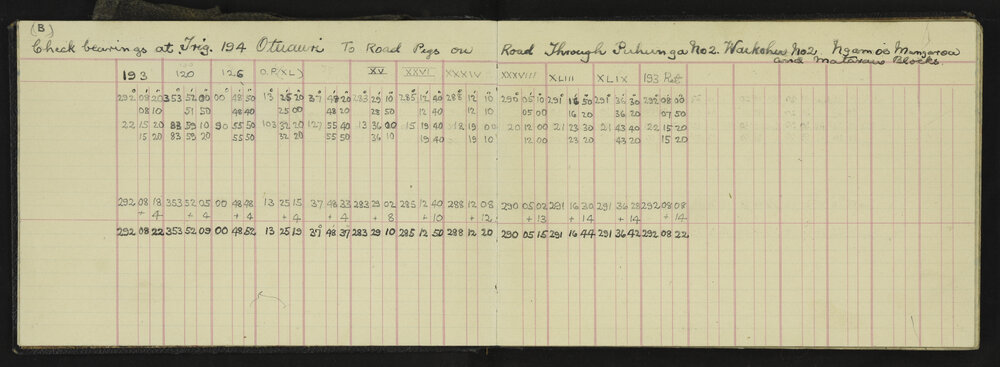 (B)
Check bearings at Trig. 194 Otuauri To Road Pegs on Road Through Puhunga No2. Waikohu No2. Ngamoe Mangaroa
and Matawai Blocks.
193 120 126 O.P.(XL) XV XXVI XXXIV XXXVIII XLIII XLIX 193 Ref
292 08 20 353 52 00 00 48 50 13 25 20 37 48 20 283 29 10 285 12 40 288 12 10 290 05 10 291 16 50 291 36 30 292 08 00
08 10 51 50 48 40 25 00 48 20 28 50 12 40 12 10 05 00 16 20 36 20 07 50
22 15 20 83 59 10 90 55 50 103 32 20 127 55 40 13 36 00 15 19 40 18 19 00 20 12 00 21 23 30 21 43 40 22 15 20
15 20 83 59 20 55 50 32 20 55 50 36 10 19 40 19 10 12 00 23 20 43 20 15 20
292 08 18 353 52 05 00 48 48 13 25 15 37 48 33 283 29 02 285 12 40 288 12 08 290 05 02 291 16 30 291 36 28 292 08 08
+ 4 + 4 + 4 + 4 + 4 + 8 + 10 + 12 + 13 + 14 + 14 + 14
292 08 22 353 52 09 00 48 52 13 25 19 37 48 37 283 29 10 285 12 50 288 12 20 290 05 15 291 16 44 291 36 42 292 08 22